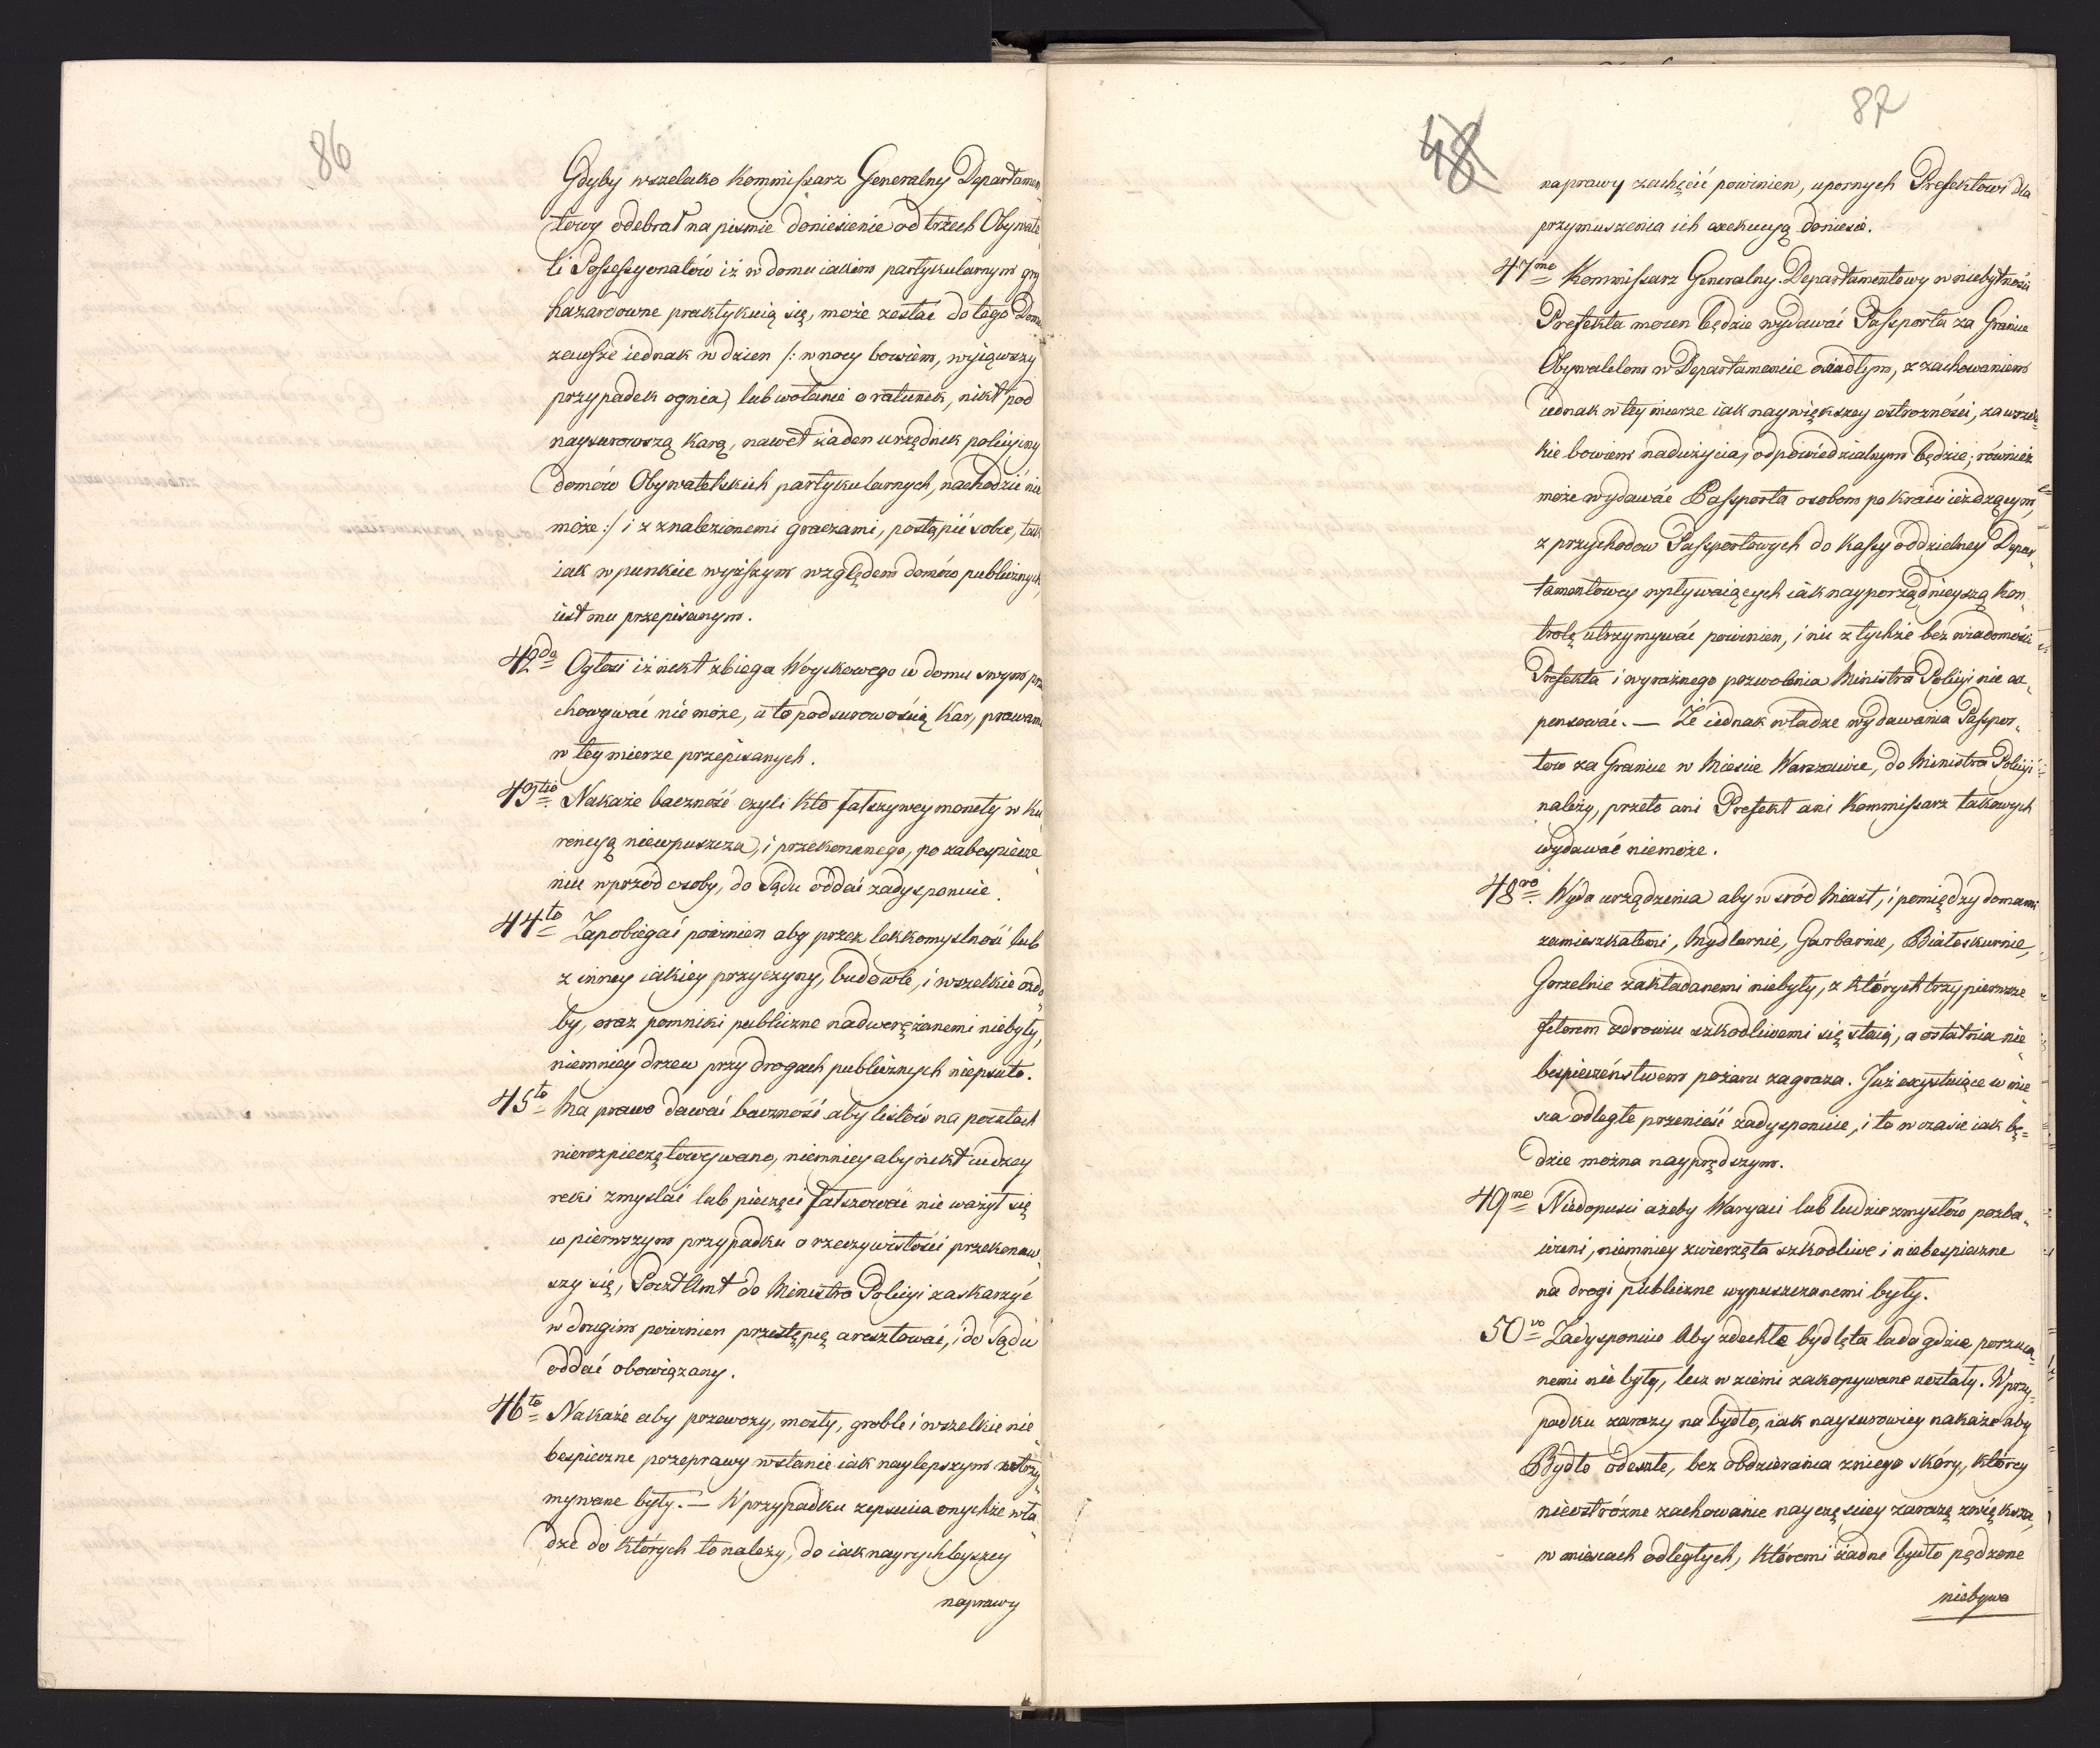 86
Gdyby wszelako Kommissarz Generalny Departamen„
towy odebrał na pismie doniesienie od trzech Obywate„
li Possessyonatów iż w domu iakim partykularnym gry
hazardowne praktykuią się, może zestać do tego Domu
zawsze iednak w dzien /: w nocy bowiem, wyiąwszy
przypadek ognia, lub wołanie o ratunek, nikt pod
naysurowszą karą, nawet żaden urzędnik policyiny
domów Obywatelskich partykularnych, nachodzić nie
może :/ i z znalezionemi graczami, postąpić sobie, tak
iak w punkcie wyższym względem domów publicznych
iest mu przepisanym.
42da Ogłosi iż nikt zbiega Woyskowego w domu swym prze
chowywać nie może, a to pod surowością kar, prawami
w tey mierze przepisanych.
43tio Nakaże baczność czyli kto fałszywey monety w ku„
rencyą niewpuszcza, i przekonanego, po zabespiecze„
niu wprzód osoby, do Sądu oddać zadysponuie.
44to Zapobiegać powinien aby przez lekkomyslność lub
z inney iakiey przyczyny, budowle, i wszelkie ozdo„
by, oraz pomniki publiczne nadwerężanemi niebyły,
niemniey drzew przy drogach publicznych niepsuto.
45to Ma prawo dawać baczność aby listów na pocztach
nierozpieczętowywano, niemniey aby nikt cudzey
ręki zmyslać lub pieczęci fałszować nie ważył się
w pierwszym przypadku o rzeczywistości przekonaw„
szy się, PocztAmt do Ministra Policyi zaskarzyć
w drugim powinien przestępcę aresztować, i do Sądu
oddać obowiązany.
46to Nakaże aby przewozy, mosty, groble i wszelkie nie„
bespieczne przeprawy w stanie iak naylepszym utrzy„
mywane były. — W przypadku zepsucia onychże wła„
dze do których to należy, do iak nayrychleyszey
naprawy
48
87
naprawy zachęcić powinien, upornych Prefektowi dla
przymuszenia ich exekucyą doniesie.
47mo Kommissarz Generalny Departamentowy w niebytności
Prefekta mocen będzie wydawać Passporta za Granice
Obywatelom w Departamencie osiadłym, z zachowaniem
iednak w tey mierze iak naywiększey ostrozności, za wszel„
kie bowiem nadużycia, odpowiedzialnym będzie; również
może wydawać Passporta osobom po kraiu ieżdżącym,
z przychodow Passportowych do kassy oddzielney Depar„
tamentowey wpływaiących iak nayporządnieyszą kon„
trolę utrzymywać powinien, i nic z tychże bez wiadomości
Prefekta i wyraźnego pozwolenia Ministra Policyi nie ex„
pensować. — Że iednak władze wydawania Passpor„
tow za Granice w Miescie Warszawie, do Ministra Policyi
należy, przeto ani Prefekt ani Kommissarz takowych
wydawać niemoże.
48vo Wyda urządzenia aby w sród Miast, i pomiędzy domami
zamieszkałemi, Mydlarnie, Garbarnie, Białoskurnie,
Gorzelnie zakładanemi niebyły, z których trzy pierwsze
fetorem zdrowiu szkodliwemi się staią, a ostatnia nie„
bespieczeństwem pożaru zagraza. Już exystuiące w miey
sca odległe przenieść zadysponuie, i to w czasie iak bę„
dzie można nayprędszym.
49no Niedopusci ażeby Waryaci lub ludzie zmysłów pozba„
wieni, niemniey zwierzęta szkodliwe i niebespieczne
na drogi publiczne wypuszczanemi były.
50vo Zadysponuie Aby zdechłe bydlęta lada gdzie porzuca„
nemi nie były, lecz w ziemi zakopywane zostały. W przy„
padku zarazy na bydło, iak naysurowiey nakaże aby
Bydło odeszłe, bez obdzierania zniego skóry, którey
nieostróżne zachowanie nayczęsciey zarazę zwiększa,
w mieścach odległych, któremi żadne bydło pędzone
niebywa